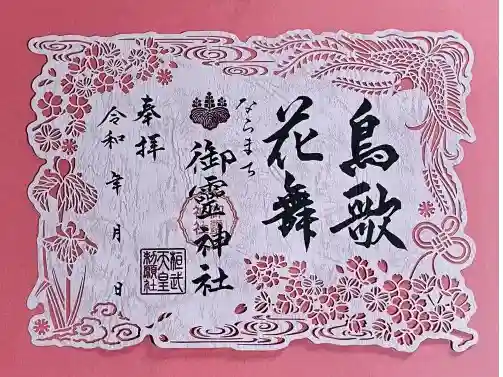 鳥歌
花舞
ならまち
御霊神社
桓武
天皇
勅願社
奉拝
令和 年 月 日